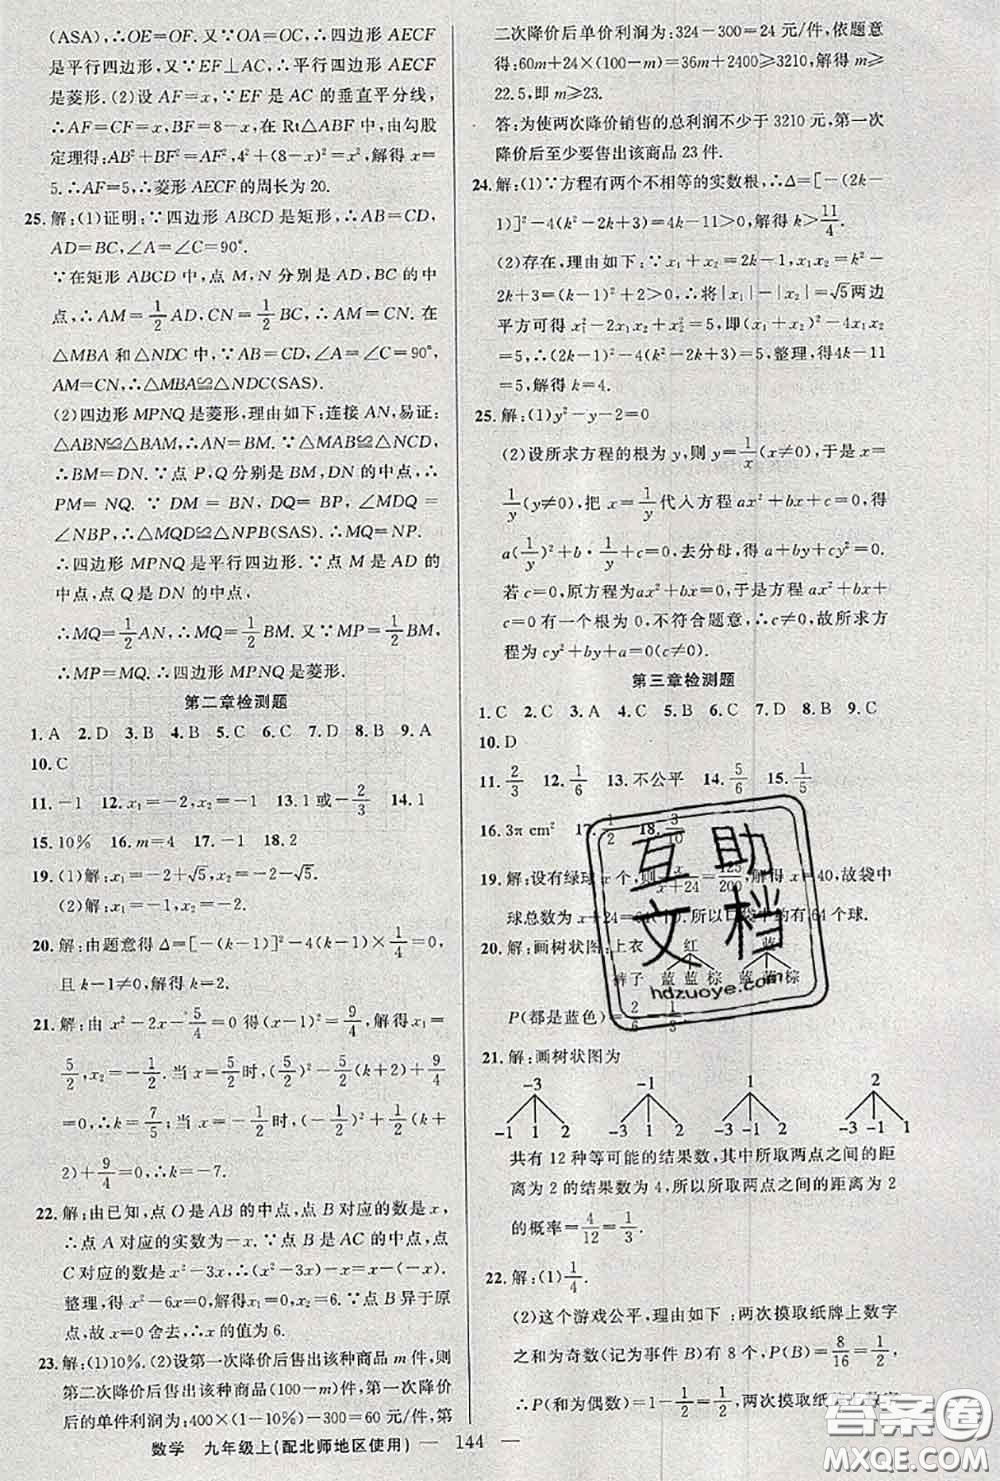 (ASA),∴OE=OF.又∵OA=OC,∴四边形 AECF
是平行四边形,又∵EF⊥AC,∴平行四边形 AECF
是菱形.(2)设 AF=x,∵EF 是 AC 的垂直平分线,
∴AF=CF=x,BF=8-x,在 Rt△ABF 中,由勾股
定理得:AB²+BF²=AF²,4²+(8-x)²=x²,解得 x=
5.∴AF=5,∴菱形 AECF 的周长为 20.
25.解:(1)证明:∵四边形 ABCD 是矩形,∴AB=CD,
AD=BC,∠A=∠C=90°.
∵在矩形 ABCD 中,点 M,N 分别是 AD,BC 的中
点,∴AM=1/2AD,CN=1/2BC,∴AM=CN.在
△MBA 和△NDC 中,∵AB=CD,∠A=∠C=90°,
AM=CN,∴△MBA≌△NDC(SAS).
(2)四边形 MPNQ 是菱形,理由如下:连接 AN,易证:
△ABN≌△BAM,∴AN=BM.∵△MAB≌△NDC,
∴BM=DN.∵点 P,Q 分别是 BM,DN 的中点,∴
PM=NQ.∵DM=BN,DQ=BP,∠MDQ=
∠NBP,∴△MQD≌△NPB(SAS).∴MQ=NP.
∴四边形 MPNQ 是平行四边形.∵点 M 是 AD 的
中点,点 Q 是 DN 的中点,
∴MQ=1/2AN,∴MQ=1/2BM.又∵MP=1/2BM,
∴MP=MQ.∴四边形 MPNQ 是菱形.
第二章检测题
1.A 2.D 3.B 4.B 5.C 6.C 7.D 8.B 9.A
10.C
11.-1 12.x₁=-2,x₂=-1 13.1 或-2/3 14.1
15.10% 16.m=4 17.-1 18.2
19.(1)解:x₁=-2+√5,x₂=-2-√5.
(2)解:x₁=-2,x₂=4.
20.解:由题意得 Δ=[-(k-1)]²-4(k-1)×1/4=0,
且 k-1≠0,解得 k=2.
21.解:由 x²-2x-5/4=0 得(x-1)²=9/4,解得 x₁=
5/2,x₂=-1/2.当 x=5/2时,(5/2)²-5/2(k+2)+9/4
=0,∴k=7/5;当 x=-1/2时,(-1/2)²+1/2(k+
2)+9/4=0,∴k=-7.
22.解:由已知,点 O 是 AB 的中点,点 B 对应的数是 x,
∴点 A 对应的实数为-x.∵点 B 是 AC 的中点,点
C 对应的数是 x²-3x,∴(x²-3x)-x=x-(-x).
整理,得 x²-6x=0,解得x₁=0,x₂=6.∵点 B 异于原
点,故 x=0 舍去,∴x 的值为 6.
23.解:(1)10%.(2)设第一次降价后售出该种商品 m 件,则
第二次降价后售出该种商品(100-m)件,第一次降价后
的单件利润为:400×(1-10%)-300=60 元/件,第
二次降价后单价利润为:324-300=24 元/件,依题意
得:60m+24×(100-m)=36m+2400≥3210,解得 m≥
22.5,即 m≥23.
答:为使两次降价销售的总利润不少于 3210 元,第一次
降价后至少要售出该商品 23 件.
24.解:(1)∵方程有两个不相等的实数根,∴Δ=[-(2k-
1)]²-4(k²-2k+3)=4k-11>0,解得 k>11/4.
(2)存在,理由如下:∵x₁+x₂=2k-1,x₁x₂=k²-
2k+3=(k-1)²+2>0,∴将|x₁|-|x₂|=√5两边
平方可得 x₁²-2x₁x₂+x₂²=5,即(x₁+x₂)²-4x₁x₂
=5,∴(2k-1)²-4(k²-2k+3)=5,整理,得4k-11
=5,解得 k=4.
25.解:(1)y²-y-2=0
(2)设所求方程的根为 y,则 y=1/x(x≠0),于是 x=
1/y(y≠0),把 x=1/y代入方程 ax²+bx+c=0,得
a(1/y)²+b·1/y+c=0,去分母,得 a+by+cy²=0.
若 c=0,原方程为 ax²+bx=0,于是方程 ax²+bx+
c=0 有一个根为 0,不符合题意,∴c≠0,故所求方
程为 cy²+by+a=0(c≠0).
第三章检测题
1.C 2.B 3.D 4.C 5.C 6.D 7.D 8.B 9.C
10.D
11.2/3 12.1/6 13.不公平 14.5/6 15.1/5
16.3π cm² 17.1/2 18.3/10
19.解:设有绿球 x 个,则x/(x+24)=125/200,解得 x=40,故袋中
球总数为 x+24=64(个).所以口袋中约有 64 个球.
20.解:画树状图:上衣 红 蓝
裤子 蓝 蓝 棕 蓝 蓝 棕
P(都是蓝色)=2/6=1/3.
21.解:画树状图为
-3 -1 1 2
-1 1 2 -3 1 2 -3 -1 2 -3 -1 1
共有 12 种等可能的结果数,其中所取两点之间的距
离为 2 的结果数为 4,所以所取两点之间的距离为 2
的概率=4/12=1/3.
22.解:(1)1/4.
(2)这个游戏公平,理由如下:两次摸取纸牌上数字
之和为奇数(记为事件 B)有 8 个,P(B)=8/16=1/2,
∴P(和为偶数)=1-1/2=1/2,两次摸取纸牌
数学 九年级上(配北师地区使用) — 144 —
互助文档
hdzuoye.com
答案圈
MXQE.COM